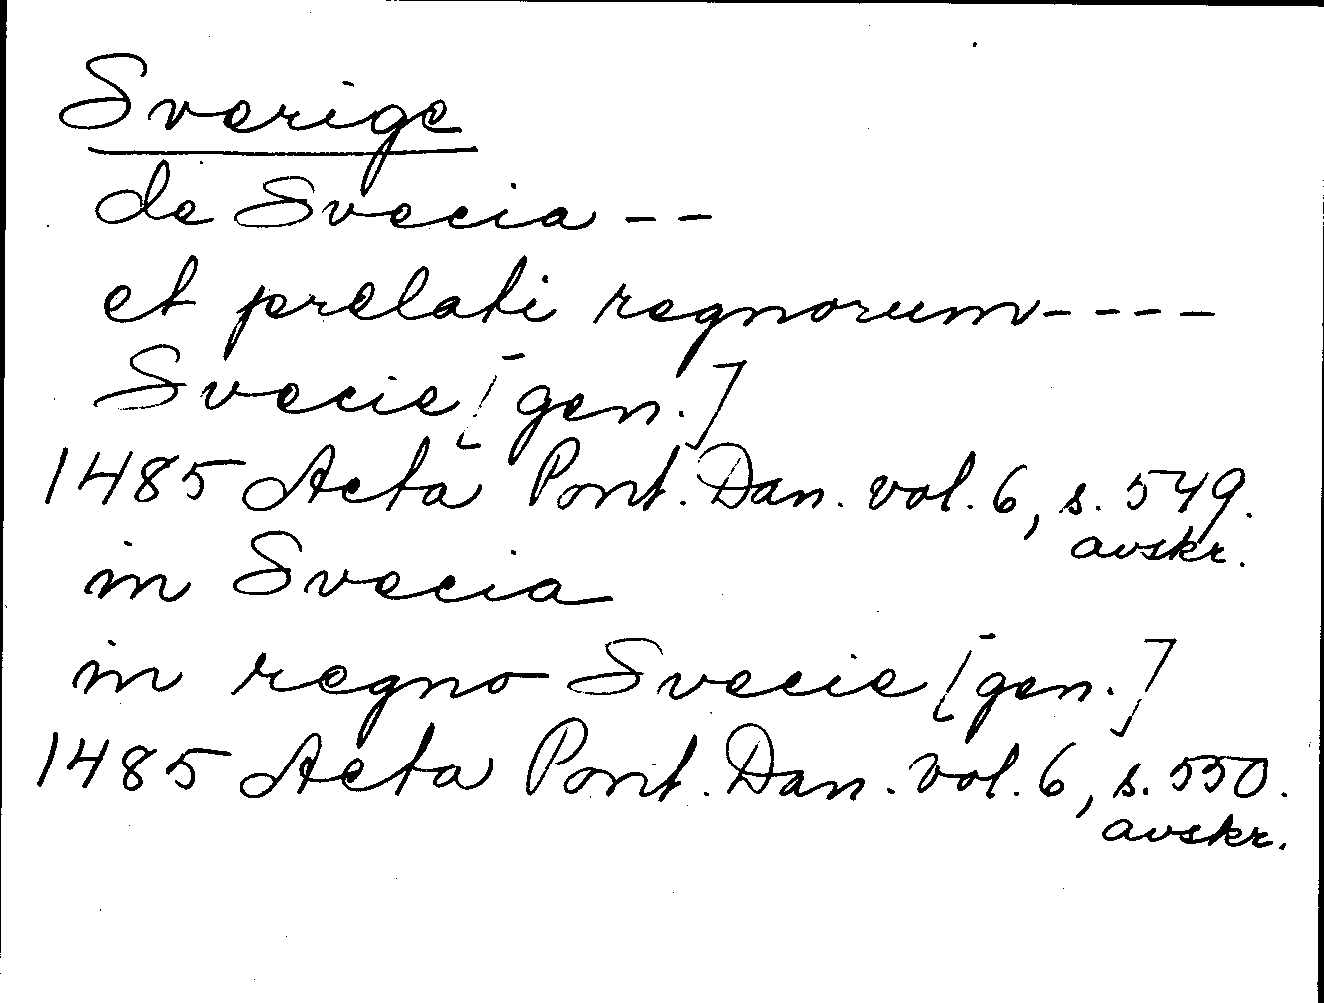 Sverige
de Svecia --
et prelati regnorum ----
Svecie [gen.]
1485 Acta Pont. Dan. vol. 6, s. 549.
avskr.
in Svecia
in regno Svecie [gen.]
1485 Acta Pont. Dan. vol. 6, s. 550.
avskr.